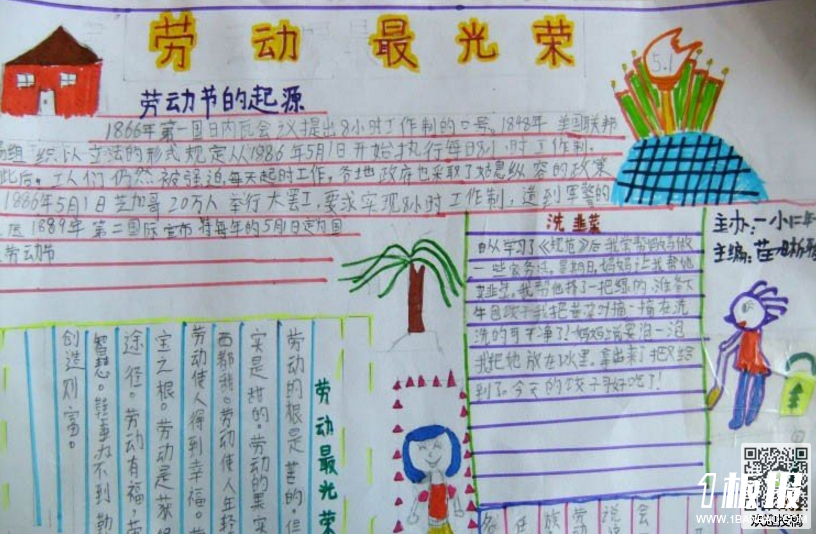 劳动最光荣
5.1
劳动节的起源
1866年第一国日内瓦会议提出8小时工作制的口号。1848年 美国联邦
组织以立法的形式规定从1986年5月1日开始执行每日8小时工作制,
此后,工人们仍然被强迫每天起时工作。各地政府也采取了姑息纵容的政策
1886年5月1日芝加哥20万人 举行大罢工,要求实现8小时工作制,遭到军警的
1889年 第二国际宣布 将每年的5月1日定为国
劳动节
洗韭菜
自从学习了《规范》后我常帮妈妈做
一些家务活。星期日,妈妈让我帮她
韭菜。我帮他择了一把绿的 准备下
午包饺子我把韭菜
洗的可干净了!妈妈说要泡一泡
我把他放在水里。拿出来了把
到了。今天的饺子真好吃了!
主办:一小二年
主编:
劳动最光荣
劳动的根是苦的。但
实是甜的。劳动的果实
西都甜。劳动使人年轻
劳动使人得到幸福。
宝之根。劳动是获得
途径。劳动有福,
智慧。 办不到 勤
创造财富。
任 族 劳 说 会
1板报
WWW.1BANBAO.COM
欢迎投稿